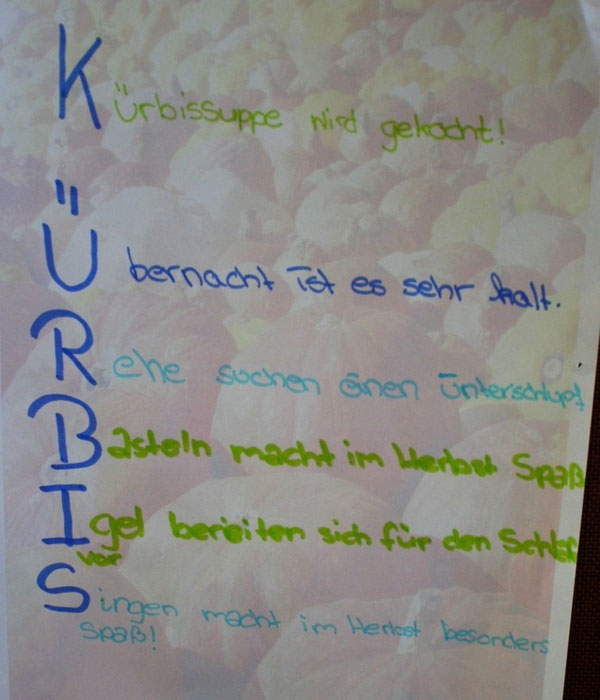 Kürbissuppe wird gekocht!
Übernacht ist es sehr kalt.
Rehe suchen einen Unterschlupf
Basteln macht im Herbst Spaß
Igel bereiten sich für den Schlaf
vor
Singen macht im Herbst besonders
Spaß!